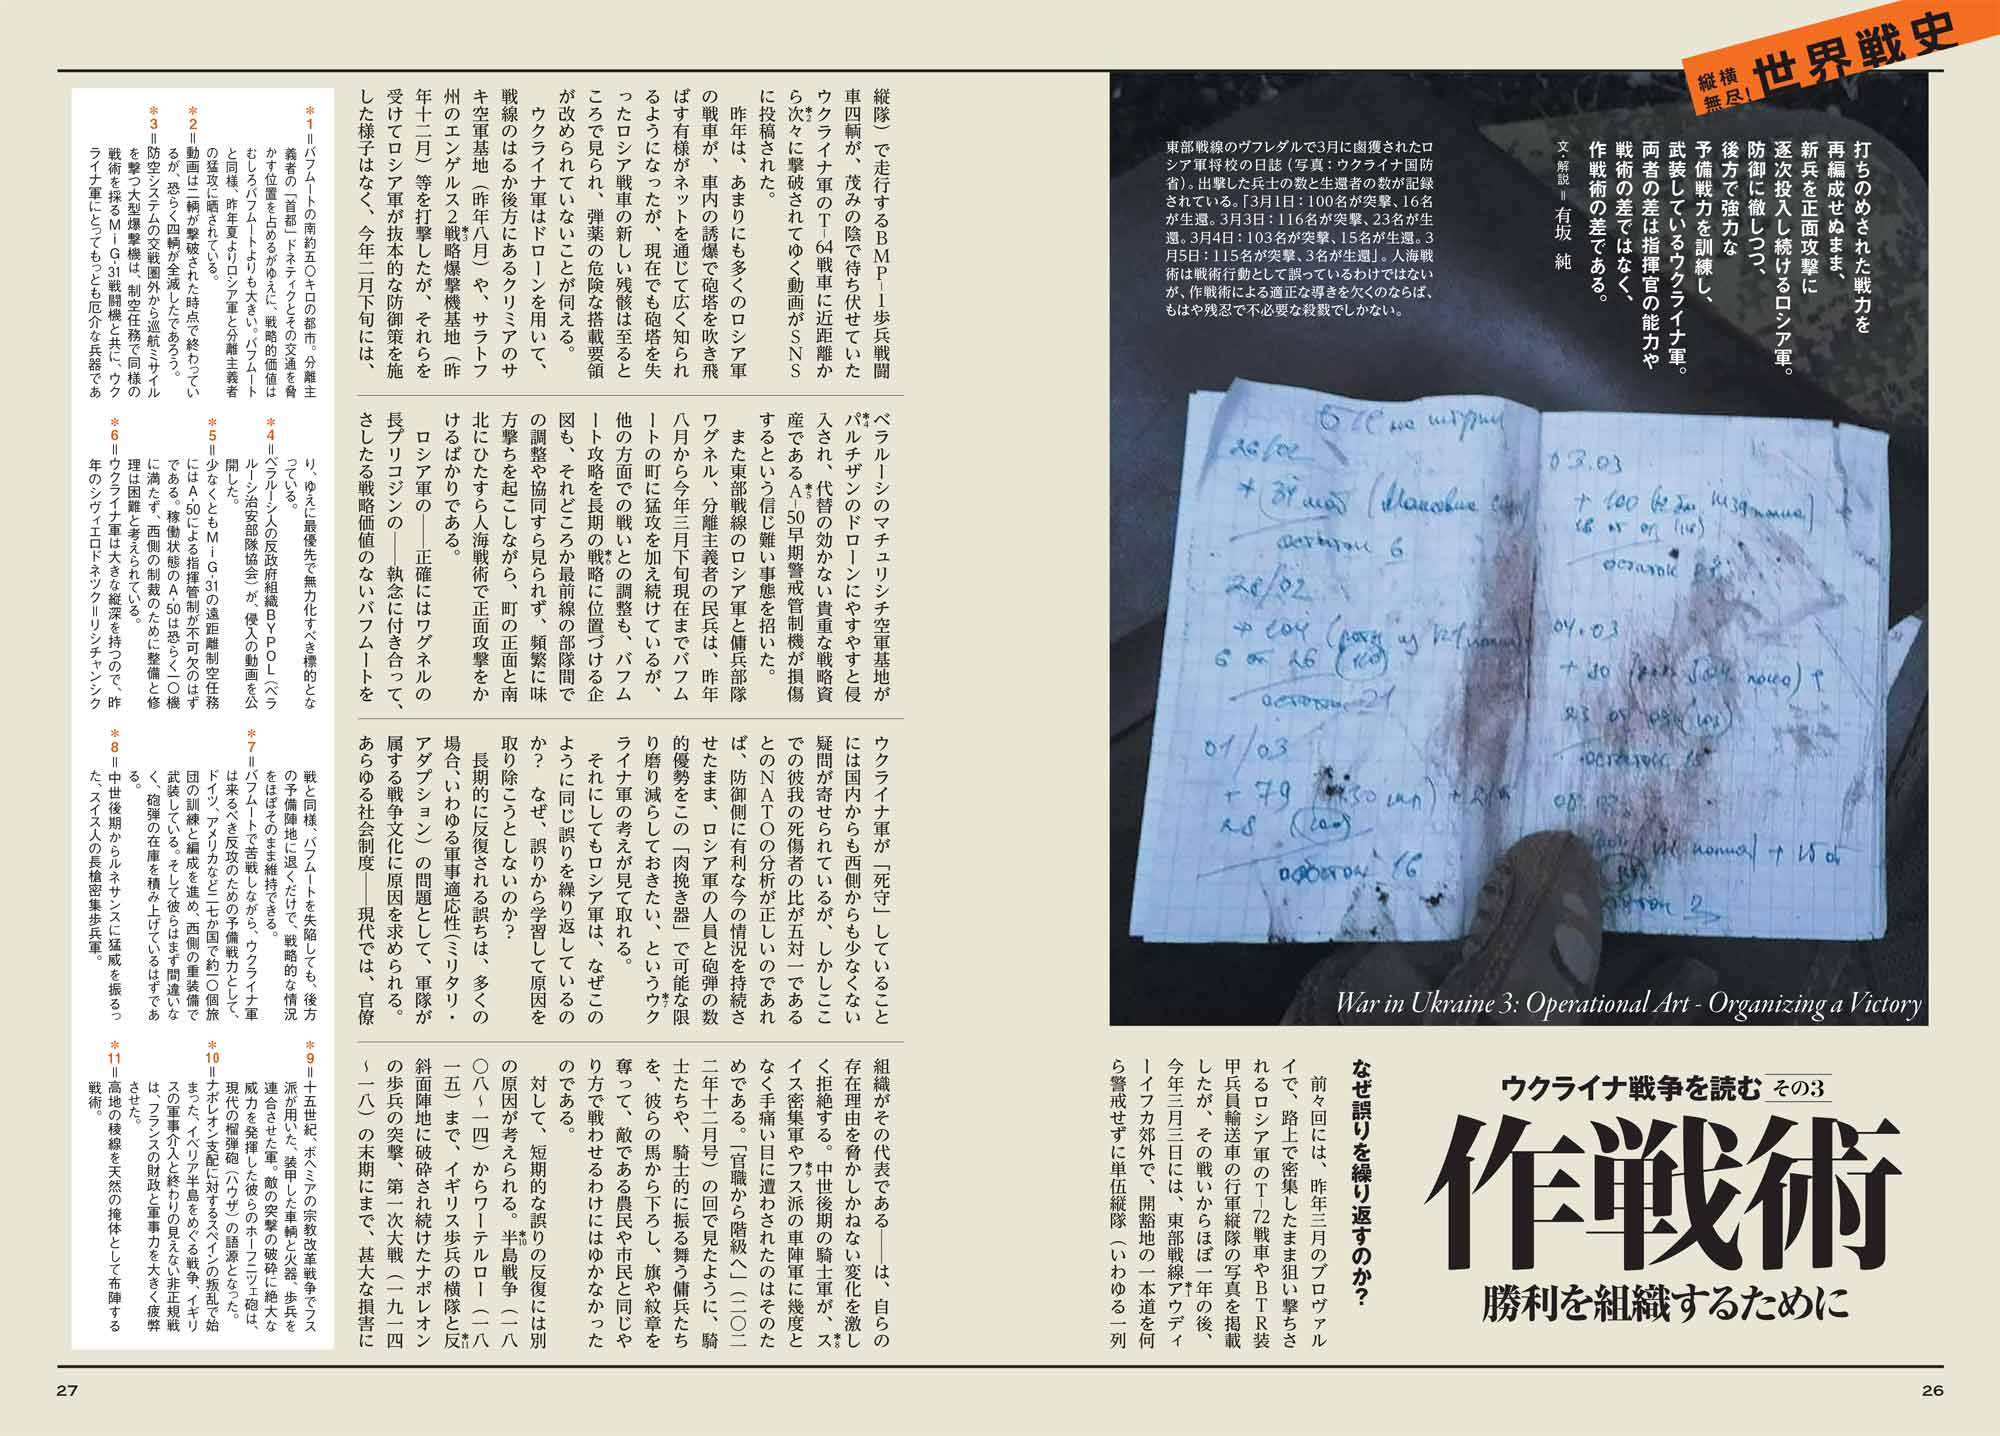 縦横
無尽!
世界戦史
打ちのめされた戦力を
再編成せぬまま、
新兵を正面攻撃に
逐次投入し続けるロシア軍。
防御に徹しつつ、
後方で強力な
予備戦力を訓練し、
武装しているウクライナ軍。
両者の差は指揮官の能力や
戦術の差ではなく、
作戦術の差である。
文・解説=有坂 純
東部戦線のヴフレダルで3月に鹵獲されたロ
シア軍将校の日誌(写真:ウクライナ国防
省)。出撃した兵士の数と生還者の数が記録
されている。「3月1日:100名が突撃、16名
が生還。3月3日:116名が突撃、23名が生
還。3月4日:103名が突撃、15名が生還。3
月5日:115名が突撃、3名が生還」。人海戦
術は戦術行動として誤っているわけではない
が、作戦術による適正な導きを欠くのならば、
もはや残忍で不必要な殺戮でしかない。
26/02
28/02
01/03
03.03
04.03
War in Ukraine 3: Operational Art - Organizing a Victory
ウクライナ戦争を読む その3
作戦術
勝利を組織するために
なぜ誤りを繰り返すのか?
前々回には、昨年三月のブロヴァル
イで、路上で密集したまま狙い撃ちさ
れるロシア軍のT-72戦車やBTR装
甲兵員輸送車の行軍縦隊の写真を掲載
したが、その戦いからほぼ一年の後、
今年三月三日には、東部戦線アウディ
ーイフカ*1郊外で、開豁地の一本道を何
ら警戒せずに単伍縦隊(いわゆる一列
縦隊)で走行するBMP-1歩兵戦闘
車四輌が、茂みの陰で待ち伏せていた
ウクライナ軍のT-64戦車に近距離か
ら次々*2に撃破されてゆく動画がSNS
に投稿された。
昨年は、あまりにも多くのロシア軍
の戦車が、車内の誘爆で砲塔を吹き飛
ばす有様がネットを通じて広く知られ
るようになったが、現在でも砲塔を失
ったロシア戦車の新しい残骸は至ると
ころで見られ、弾薬の危険な搭載要領
が改められていないことが伺える。
ウクライナ軍はドローンを用いて、
戦線のはるか後方にあるクリミアのサ
キ空軍基地(昨年八月)や、サラトフ
州のエンゲルス2戦略*3爆撃機基地(昨
年十二月)等を打撃したが、それらを
受けてロシア軍が抜本的な防御策を施
した様子はなく、今年二月下旬には、
ベラルーシのマチュリシチ空軍基地が
パルチザン*4のドローンにやすやすと侵
入され、代替の効かない貴重な戦略資
産であるA-50*5早期警戒管制機が損傷
するという信じ難い事態を招いた。
また東部戦線のロシア軍と傭兵部隊
ワグネル、分離主義者の民兵は、昨年
八月から今年三月下旬現在までバフム
ートの町に猛攻を加え続けているが、
他の方面での戦いとの調整も、バフム
ート攻略を長期の戦略*6に位置づける企
図も、それどころか最前線の部隊間で
の調整や協同すら見られず、頻繁に味
方撃ちを起こしながら、町の正面と南
北にひたすら人海戦術で正面攻撃をか
けるばかりである。
ロシア軍の――正確にはワグネルの
長プリコジンの――執念に付き合って、
さしたる戦略価値のないバフムートを
ウクライナ軍が「死守」していること
には国内からも西側からも少なくない
疑問が寄せられているが、しかしここ
での彼我の死傷者の比が五対一である
とのNATOの分析が正しいのであれ
ば、防御側に有利な今の情況を持続さ
せたまま、ロシア軍の人員と砲弾の数
的優勢をこの「肉挽き器」で可能な限
り磨り減らしておきたい、というウク*7
ライナ軍の考えが見て取れる。
それにしてもロシア軍は、なぜこの
ように同じ誤りを繰り返しているの
か? なぜ、誤りから学習して原因を
取り除こうとしないのか?
長期的に反復される誤ちは、多くの
場合、いわゆる軍事適応性(ミリタリ・
アダプション)の問題として、軍隊が
属する戦争文化に原因を求められる。
あらゆる社会制度――現代では、官僚
組織がその代表である――は、自らの
存在理由を脅かしかねない変化を激し
く拒絶する。中世後期の騎士軍が、ス*8
イス密集軍やフス*9派の車陣軍に幾度と
なく手痛い目に遭わされたのはそのた
めである。「官職から階級へ」(二〇二
二年十二月号)の回で見たように、騎
士たちや、騎士的に振る舞う傭兵たち
を、彼らの馬から下ろし、旗や紋章を
奪って、敵である農民や市民と同じや
り方で戦わせるわけにはゆかなかった
のである。
対して、短期的な誤りの反復には別
の原因が考えられる。半島*10戦争(一八
〇八~一四)からワーテルロー(一八
一五)まで、イギリス歩兵の横隊と反*11
斜面陣地に破砕され続けたナポレオン
の歩兵の突撃、第一次大戦(一九一四
~一八)の末期にまで、甚大な損害に
*1=バフムートの南約五〇キロの都市。分離主
義者の「首都」ドネティクとその交通を脅
かす位置を占めるがゆえに、戦略的価値は
むしろバフムートよりも大きい。バフムート
と同様、昨年夏よりロシア軍と分離主義者
の猛攻に晒されている。
*2=動画は二輌が撃破された時点で終わってい
るが、恐らく四輌が全滅したであろう。
*3=防空システムの交戦圏外から巡航ミサイル
を撃つ大型爆撃機は、制空任務で同様の
戦術を採るMiG-31戦闘機と共に、ウク
ライナ軍にとってもっとも厄介な兵器であ
り、ゆえに最優先で無力化すべき標的とな
っている。
*4=ベラルーシ人の反政府組織BYPOL(ベラ
ルーシ治安部隊協会)が、侵入の動画を公
開した。
*5=少なくともMiG-31の遠距離制空任務
にはA-50による指揮管制が不可欠のはず
である。稼働状態のA-50は恐らく一〇機
に満たず、西側の制裁のために整備と修
理は困難と考えられている。
*6=ウクライナ軍は大きな縦深を持つので、昨
年のシヴィエロドネツク=リシチャンシク
戦と同様、バフムートを失陥しても、後方
の予備陣地に退くだけで、戦略的な情況
をほぼそのまま維持できる。
*7=バフムートで苦戦しながら、ウクライナ軍
は来るべき反攻のための予備戦力として、
ドイツ、アメリカなど二七か国で約一〇個旅
団の訓練と編成を進め、西側の重装備で
武装している。そして彼らはまず間違いな
く、砲弾の在庫を積み上げているはずであ
る。
*8=中世後期からルネサンスに猛威を振るっ
た、スイス人の長槍密集歩兵軍。
*9=十五世紀、ボヘミアの宗教改革戦争でフス
派が用いた、装甲した車輌と火器、歩兵を
連合させた軍。敵の突撃の破砕に絶大な
威力を発揮した彼らのホーフニツェ砲は、
現代の榴弾砲(ハウザ)の語源となった。
*10=ナポレオン支配に対するスペインの叛乱で始
まった、イベリア半島をめぐる戦争。イギリ
スの軍事介入と終わりの見えない非正規戦
は、フランスの財政と軍事力を大きく疲弊
させた。
*11=高地の稜線を天然の掩体として布陣する
戦術。
27
26